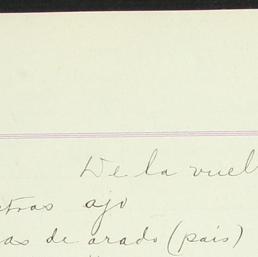 De la vuel
tras ajo
as de arado (país)